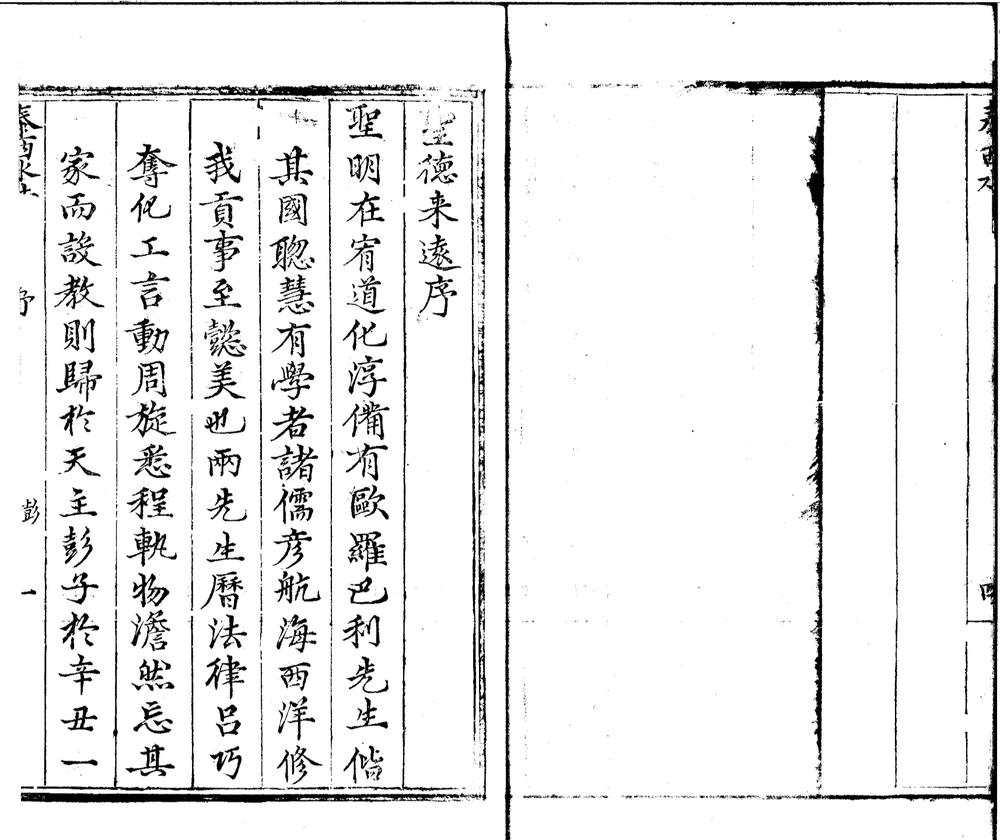 泰西水
四
聖德来遠序
聖明在宥道化淳備有歐羅巴利先生偕
其國聦慧有學者諸儒彦航海西洋修
我貢事至懿美也兩先生曆法律吕巧
奪化工言動周旋悉程軌物澹然忘其
家而設教則歸於天主彭子於辛丑一
泰西水法
序
彭
一